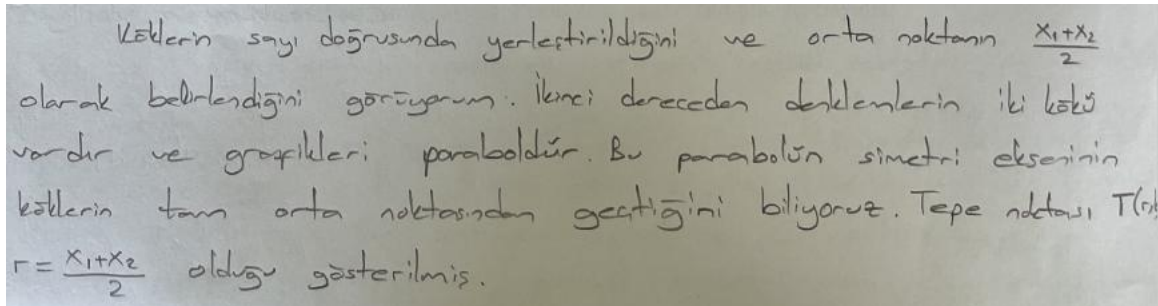 Köklerin sayı doğrusunda yerleştirildiğini ve orta noktanın (x₁+x₂)/2
olarak belirlendiğini görüyorum. İkinci dereceden denklemlerin iki kökü
vardır ve grafikleri paraboldür. Bu parabolün simetri ekseninin
köklerin tam orta noktasından geçtiğini biliyoruz. Tepe noktası
r = (x₁+x₂)/2 olduğu gösterilmiş.